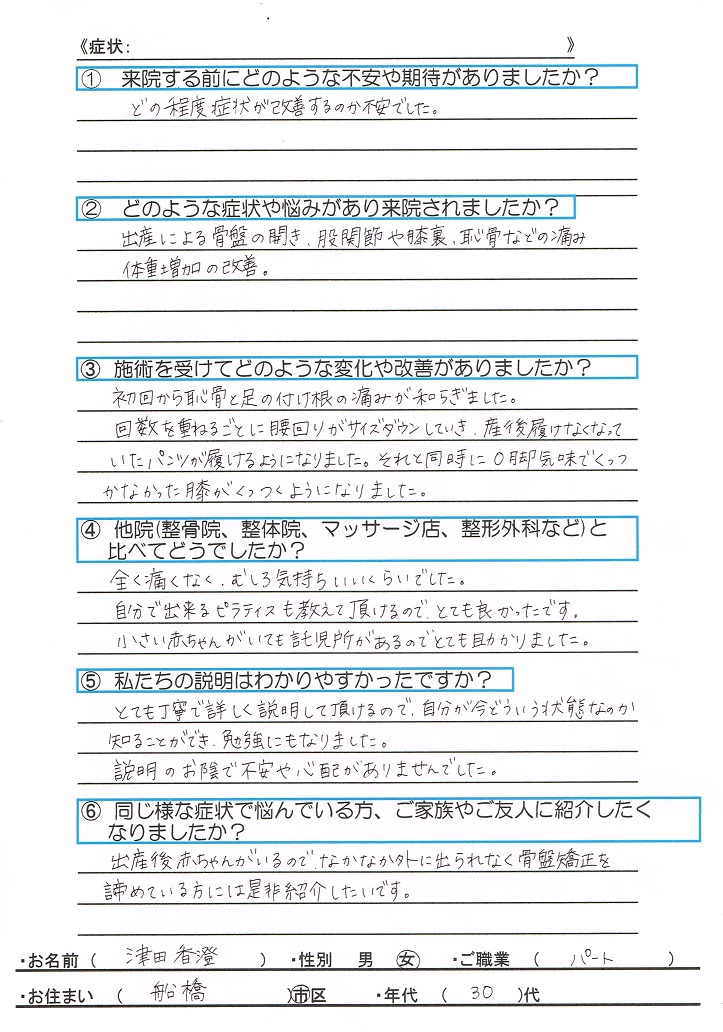 《症状：　　　》
① 来院する前にどのような不安や期待がありましたか？
どの程度症状が改善するのか不安でした。
② どのような症状や悩みがあり来院されましたか？
出産による骨盤の開き、股関節や膝裏、恥骨などの痛み
体重増加の改善。
③ 施術を受けてどのような変化や改善がありましたか？
初回から恥骨と足の付け根の痛みが和らぎました。
回数を重ねるごとに腰回りがサイズダウンしていき、産後履けなくなって
いたパンツが履けるようになりました。それと同時にO脚気味でくっつ
かなかった膝がくっつくようになりました。
④ 他院(整骨院、整体院、マッサージ店、整形外科など)と
比べてどうでしたか？
全く痛くなく、むしろ気持ちいいくらいでした。
自分で出来るピラティスも教えて頂けるので、とても良かったです。
小さい赤ちゃんがいても託児所があるのでとても助かりました。
⑤ 私たちの説明はわかりやすかったですか？
とても丁寧で詳しく説明して頂けるので、自分が今どういう状態なのか
知ることができ、勉強にもなりました。
説明のお陰で不安や心配がありませんでした。
⑥ 同じ様な症状で悩んでいる方、ご家族やご友人に紹介したく
なりましたか？
出産後赤ちゃんがいるので、なかなか外に出られなく骨盤矯正を
諦めている方には是非紹介したいです。
・お名前（ 津田香澄 ）・性別 男 女 ・ご職業（ パート ）
・お住まい（ 船橋 ）市区 ・年代（ 30 ）代